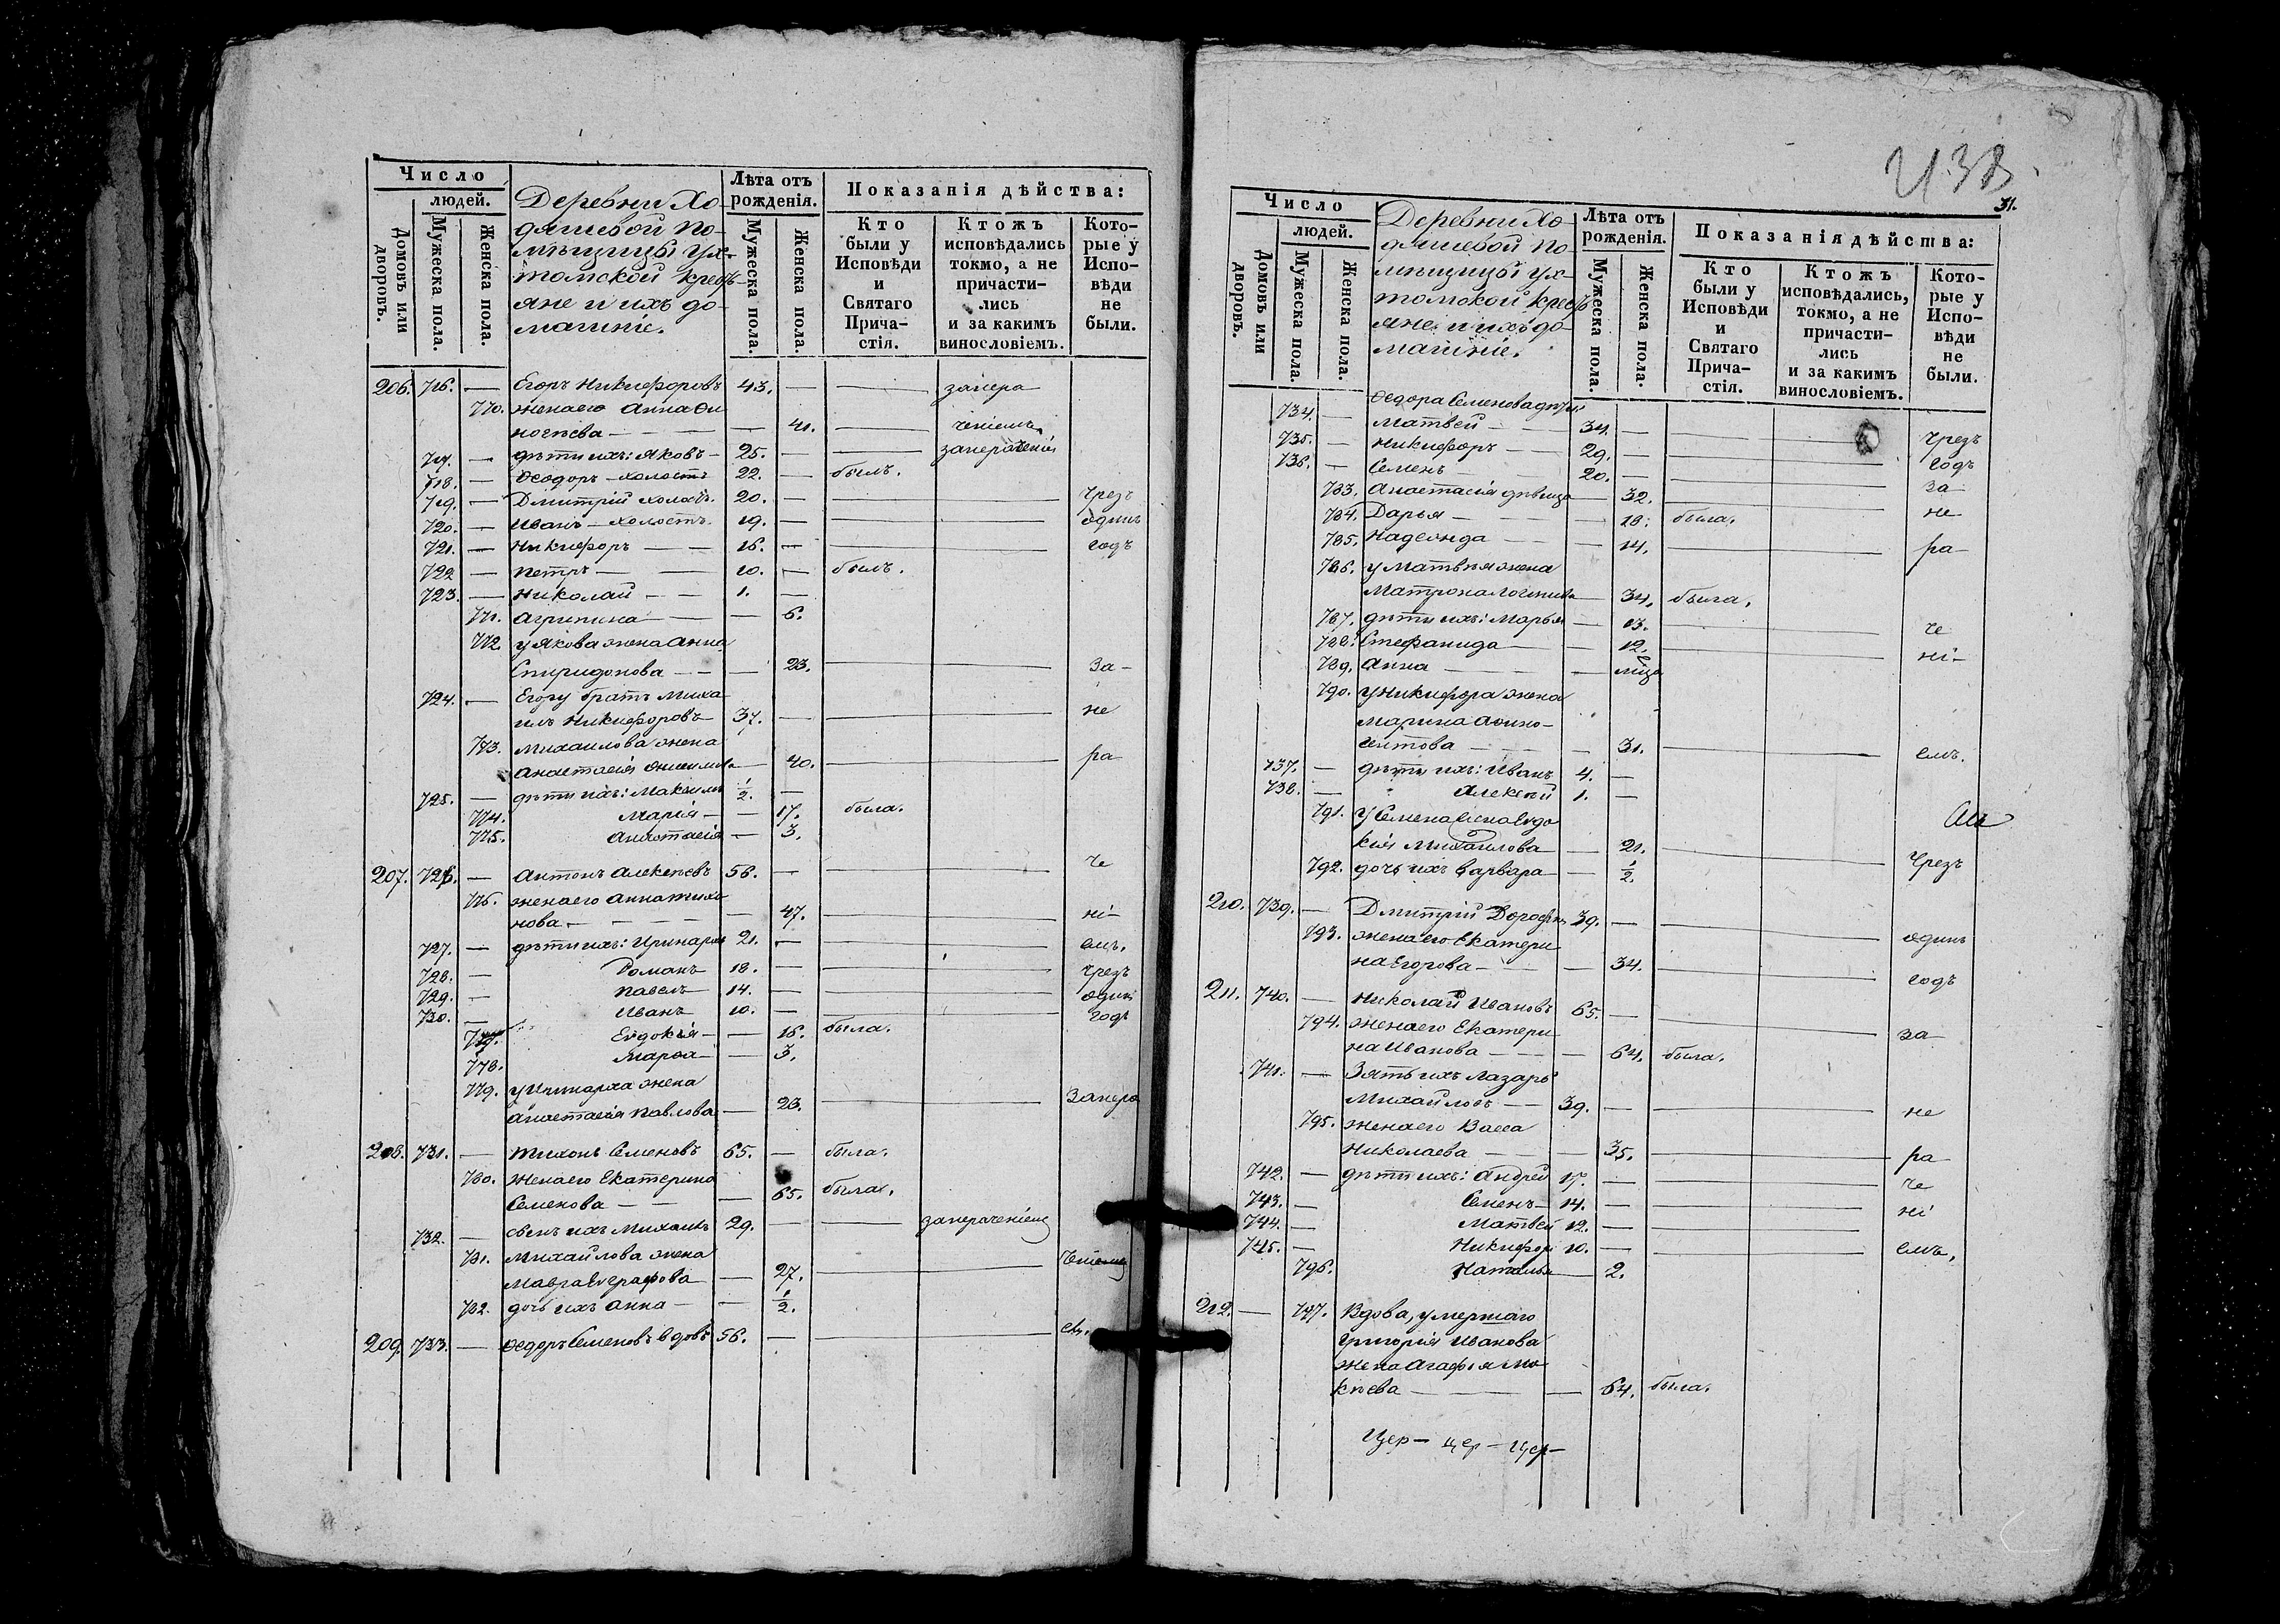 Число
людей.
Домовъ или дворовъ.
Мужеска пола.
Женска пола.
Деревни Хо-
дяшевой по-
мѣщицы Ух-
томской крестъ-
яне и ихъ до-
машніе.
Лѣта отъ
рожденія.
Мужеска пола.
Женска пола.
Показанія дѣйства:
Кто
были у
Исповѣди
и
Святаго
Прича-
стія.
Ктожъ
исповѣдались
токмо, а не
причасти-
лись
и за какимъ
винословіемъ.
Кото-
рые у
Испо-
вѣди
не
были.
206. 716. — Егоръ Никифоровъ 43. — — запера
770. жена его Анна
— 41. — ченіемъ
717. — дѣти ихъ: Яковъ — 25. — — запераченіе
718. — Ѳеодоръ — холостъ 22. — былъ.
719. — Дмитрій холостъ. 20. — — чрезъ
720. — Иванъ — холостъ. 19. — — одинъ
721. — Никифоръ — — 16. — — годъ
722 — Петръ — — 10. — былъ.
723. — Николай — — 1. —
771. Агрипина — — 6.
772. у Якова жена Анна
Спиридонова — — — 23. — За-
724. — Егору братъ Миха-
илъ Никифоровъ — 37. — — не
773. Михаилова жена
Анастасія — 40. — ра-
725. — дѣти ихъ: Максимъ ½. —
774. Марія — — 17. была.
775. Анастасія — 3.
207. 726. — Антонъ Алексѣевъ 56. — — че
776. жена его Анна Тихо-
нова — — — — 47. — ні-
727. — дѣти ихъ: Иринархъ 21. — — емъ.
728. — Романъ 18. — — чрезъ
729. — Павелъ 14. — — одинъ
730. — Иванъ 10. — — годъ
777. Евдокія — — 16. была.
778. Марѳа — — 3.
779. у Иринарха жена
Анастасія Павлова — 23. — Запера
208. 731. — Тихонъ Семеновъ 65. — была.
780. жена его Екатерина
Семенова — — — 65. была.
732. — сынъ ихъ Михаилъ 29. — — запераченіемъ
781. Михайлова жена
Мавра Евграфова — 27. — ченіемъ
782. дочь ихъ Анна — — ½.
209. 733. — Ѳедоръ Семеновъ вдовъ 56. — —
Ч.38.
31.
Число
людей.
Домовъ или дворовъ.
Мужеска пола.
Женска пола.
Деревни Хо-
дяшевой по-
мѣщицы Ух-
томской кресть-
яне и ихъ до-
машніе.
Лѣта отъ
рожденія.
Мужеска пола.
Женска пола.
Показанія дѣйства:
Кто
были у
Исповѣди
и
Святаго
Прича-
стія.
Ктожъ
исповѣдались,
токмо, а не
причасти-
лись
и за какимъ
винословіемъ.
Кото-
рые у
Испо-
вѣди
не
были.
Ѳедора Семенова дѣти:
734. — Матвей — 34. — — чрезъ
735. — Никифоръ — — 29. — — годъ
736. — Семенъ — 20. — — за
783. Анастасія дѣвица — 32. — не
784. Дарья — — 18. была.
785. Надежда — — 14. — ра-
786. у Матвѣя жена
Матрона — 34. была.
787. дѣти ихъ: Марья — 13. — че
788. Стефанида — — 12. — ні-
789. Анна — —
790. у Никифора жена
Марина
— — 31. — емъ.
737. — дѣти ихъ: Иванъ 4. —
738. — Алексѣй 1. —
791. у Семена жена Евдо-
кія Михайлова — 21. — Чрезъ
792. дочь ихъ Варвара — — ½.
210. 739. — Дмитрій Дорофѣевъ 39. —
793. жена его Екатери — одинъ
на Егорова — — 34. — годъ
211. 740. — Николай Ивановъ 65. — — за
794. жена его Екатери
на Иванова — — — 64. была.
741. — Зять ихъ Лазарь
Михайловъ — 39. — — не
795. жена его Васса
Николаева — — 35. — ра-
742. — дѣти ихъ: Андрей 17. — — че
743. — Семенъ — 14. — — ні
744. — Матвей 12. —
745. — Никифоръ 10. — — емъ.
796. Наталья — 2.
212. — 797. Вдова, умершаго
Григорія Иванова
жена Агафья Мо-
кѣева — — 64. была.
Цер — цер — цер —